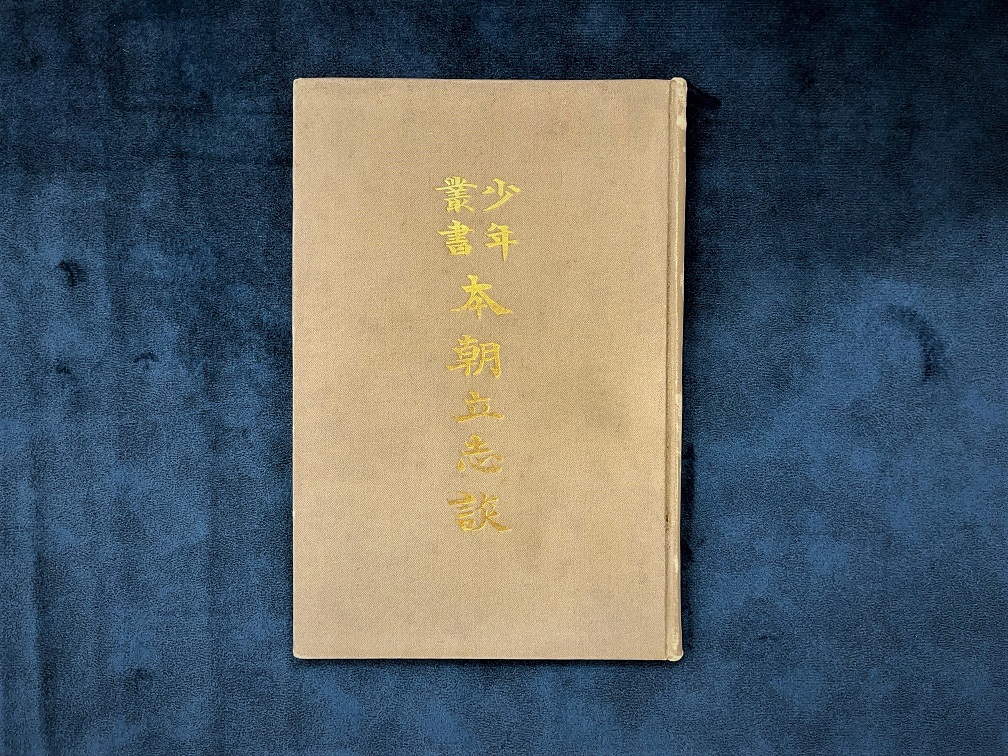 少年
叢書
本朝立志談